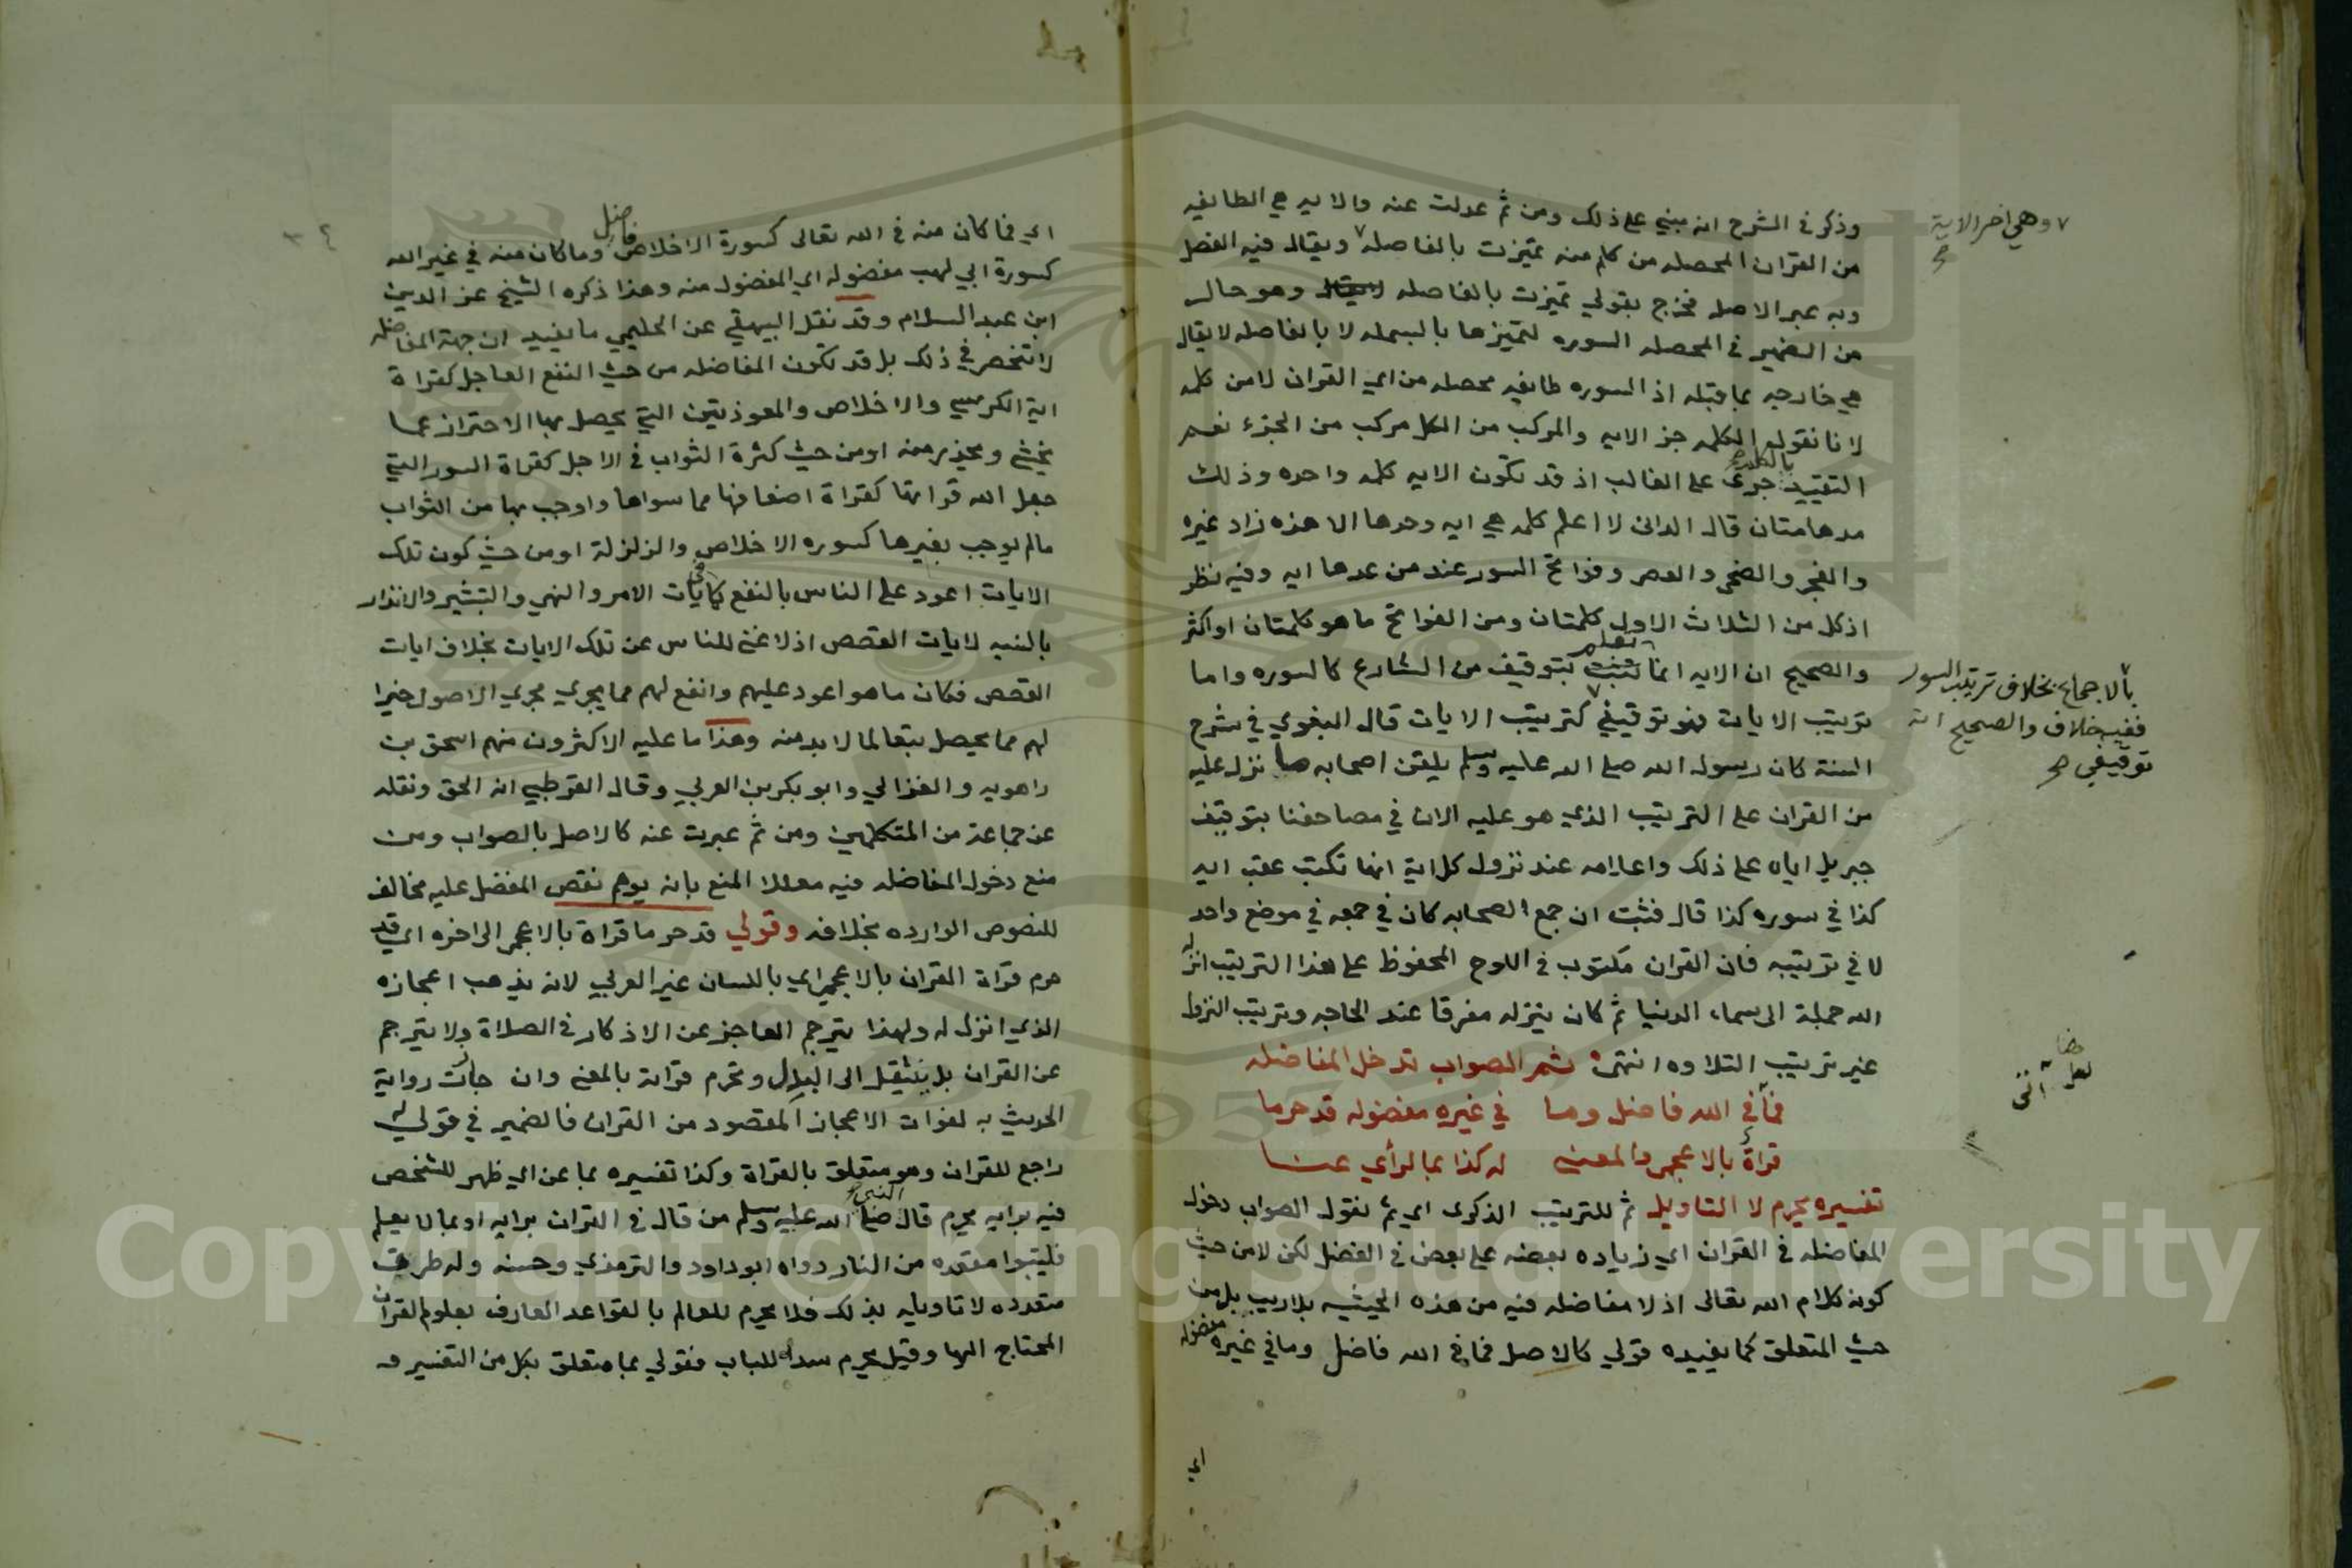 وذكر في الشرح انه مبني على ذلك ومن ثم عدلت عنه والايه هي الطايفه
من القران المحصله من كلم منه تميزت بالفاصله ويقال فيه الفصل
وهي اخر الاية
وبه عبر الاصل فخرج بقولي تميزت بالفاصله وهو حال
من الضمير في المحصله السوره لتميزها بالبسمله لا بالفاصله لا يقال
هي خارجه بما قبله اذ السوره طايفه محصله من اي القران لا من كلمه
لانا نقول الكلمه جز الايه والمركب من الكل مركب من الجزء نعم
التقييد بالكلم جرى على الغالب اذ قد تكون الايه كلمه واحده وذلك
مدهامتان قال الدانى لا اعلم كلمه هي ايه وحدها الا هذه زاد غيره
والفجر والضحى والعصر وفواتح السور عند من عدها ايه وفيه نظر
اذ كل من الثلاث الاول كلمتان ومن الفواتح ما هو كلمتان او اكثر
والصحيح ان الايه انما تعلم بتوقيف من الشارع كالسوره واما
ترتيب الايات فهو توقيفي كترتيب الايات قال البغوي في شرح
بالاجماع بخلاف ترتيب السور
ففيه خلاف والصحيح انه
توقيفي صح
السنة كان رسول الله صلى الله عليه وسلم يلقن اصحابه ما نزل عليه
من القران على الترتيب الذي هو عليه الان في مصاحفنا بتوقيف
جبريل اياه على ذلك واعلامه عند نزول كل اية انها تكتب عقب ايه
كذا في سوره كذا قال فثبت ان جمع الصحابه كان في جمعه في موضع واحد
لا في ترتيبه فان القران مكتوب في اللوح المحفوظ على هذا الترتيب انزله
الله جملة الى سماء الدنيا ثم كان ينزله مفرقا عند الحاجه وترتيب النزول
غير ترتيب التلاوه انتهى ثم الصواب تدخل المفاضله
فما في الله فاضل وما في غيره مفضوله قد حرما
قراة بالاعجمى والمعنى له كذا بما لرأي عنا
تفسيره يحرم لا التاويل ثم للترتيب الذكرى اي ثم نقول الصواب دخول
المفاضله في القران اي زياده بعضه على بعض في الفضل لكن لا من حيث
كونه كلام الله تعالى اذ لا مفاضله فيه من هذه الحيثيه بلا ريب بل من
حيث المتعلق كما يفيده قولي كالاصل فما في الله فاضل وما في غيره مفضوله
اي
اي فما كان منه في الله تعالى كسورة الاخلاص فاضل وما كان منه في غير الله
كسورة ابي لهب مفضوله اي المفضول منه وهذا ذكره الشيخ عز الدين
ابن عبد السلام وقد نقل البيهقي عن الحليمي ما يفيد ان جهة المفاضله
لا تنحصر في ذلك بل قد تكون المفاضله من حيث النفع العاجل كقراة
اية الكرسي والاخلاص والمعوذتين التي يحصل بها الاحتراز عما
يخشى ويحذر منه او من حيث كثرة الثواب في الاجل كقراة السور التي
جعل الله قراتها كقراة اضعافها مما سواها واوجب بها من الثواب
مالم يوجب بغيرها كسوره الاخلاص والزلزلة او من حيث كون تلك
الايات اعود على الناس بالنفع كايات الامر والنهي والتبشير والانذار
بالنسبه لايات القصص اذ لا غنى للناس عن تلك الايات بخلاف ايات
القصص فكان ما هو اعود عليهم وانفع لهم مما يجري مجرى الاصول خيرا
لهم مما يحصل تبعا لما لا بد منه وهذا ما عليه الاكثرون منهم اسحق بن
راهويه والغزالي وابو بكر بن العربي وقال القرطبي انه الحق ونقله
عن جماعة من المتكلمين ومن ثم عبرت عنه كالاصل بالصواب ومن
منع دخول المفاضله فيه معللا المنع بانه يوهم نقص المفضل عليه مخالف
للنصوص الوارده بخلافه وقولي قد حرما قراة بالاعجمى الى اخره اي قد
حرم قراة القران بالاعجمي اي باللسان غير العربي لانه يذهب اعجازه
الذي انزل له ولهذا يترجم العاجز عن الاذكار في الصلاة ولا يترجم
عن القران بل ينتقل الى البدل وتحرم قراته بالمعنى وان جازت رواية
الحديث به لفوات الاعجاز المقصود من القران فالضمير في قولي له
راجع للقران وهو متعلق بالقراة وكذا تفسيره بما عن اي ظهر للشخص
فيه برايه يحرم قال النبي صلى الله عليه وسلم من قال في القران برايه او بما لا يعلم
فليتبوا مقعده من النار رواه ابو داود والترمذي وحسنه وله طرق
متعدده لا تاويله بذلك فلا يحرم للعالم بالقواعد العارف بعلوم القران
المحتاج اليها وقيل يحرم سدا للباب فقولي بما متعلق بكل من التفسير و
Copyright © King Saud University